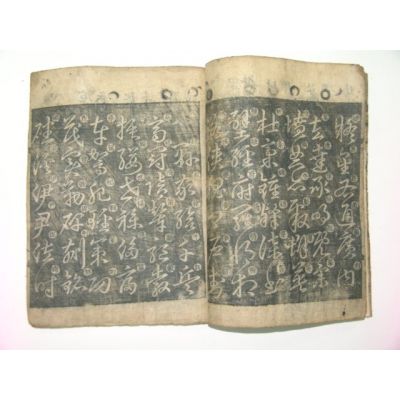 疑星右通廣內
左達承明既集
墳典亦聚群英
杜稿鍾隸漆書
壁經府羅將相
路俠槐卿戶封
八縣家給千兵
高冠陪輦驅轂
振纓世祿侈富
車駕肥輕策功
茂實勒碑刻銘
磻溪伊尹佐時